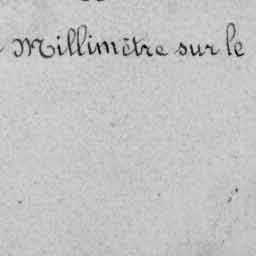 Millimètre sur le